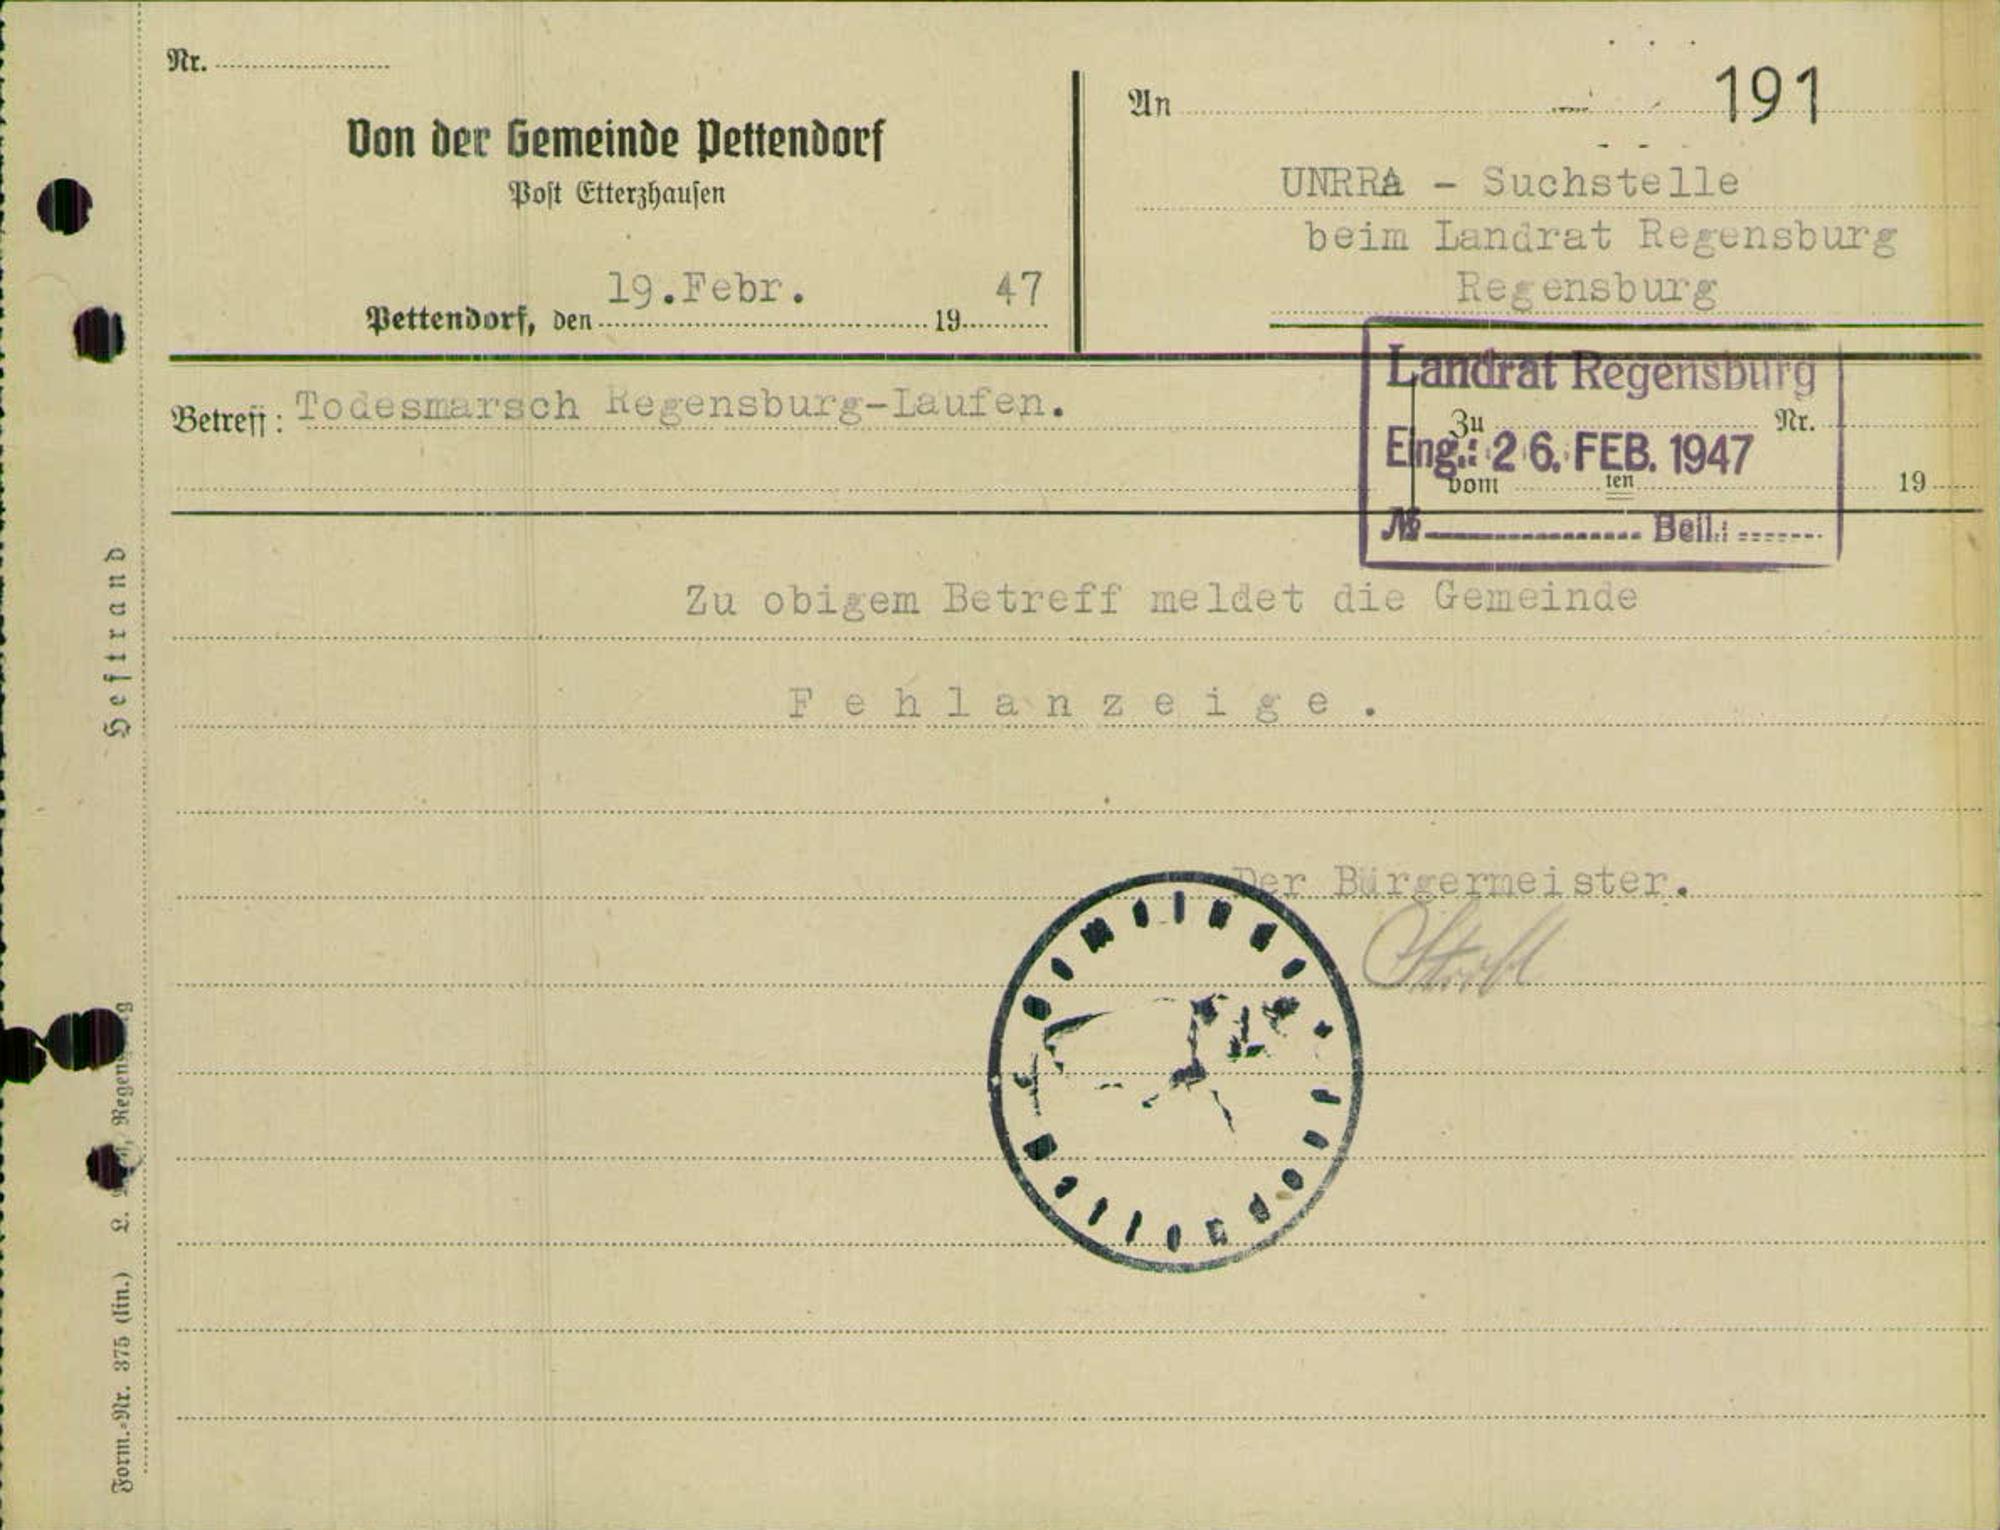 Nr.
Von der Gemeinde Pettendorf
Post Etterzhausen
Pettendorf, den 19.Febr. 1947
An
191
UNRRA - Suchstelle
beim Landrat Regensburg
Regensburg
Betreff: Todesmarsch Regensburg-Laufen.
Zu Nr.
vom ten 19
Landrat Regensburg
Eing.: 26. FEB. 1947
№ Beil.:
Zu obigem Betreff meldet die Gemeinde
Fehlanzeige.
Der Bürgermeister.
Heftrand
Form.-Nr. 375 (lin.) L.